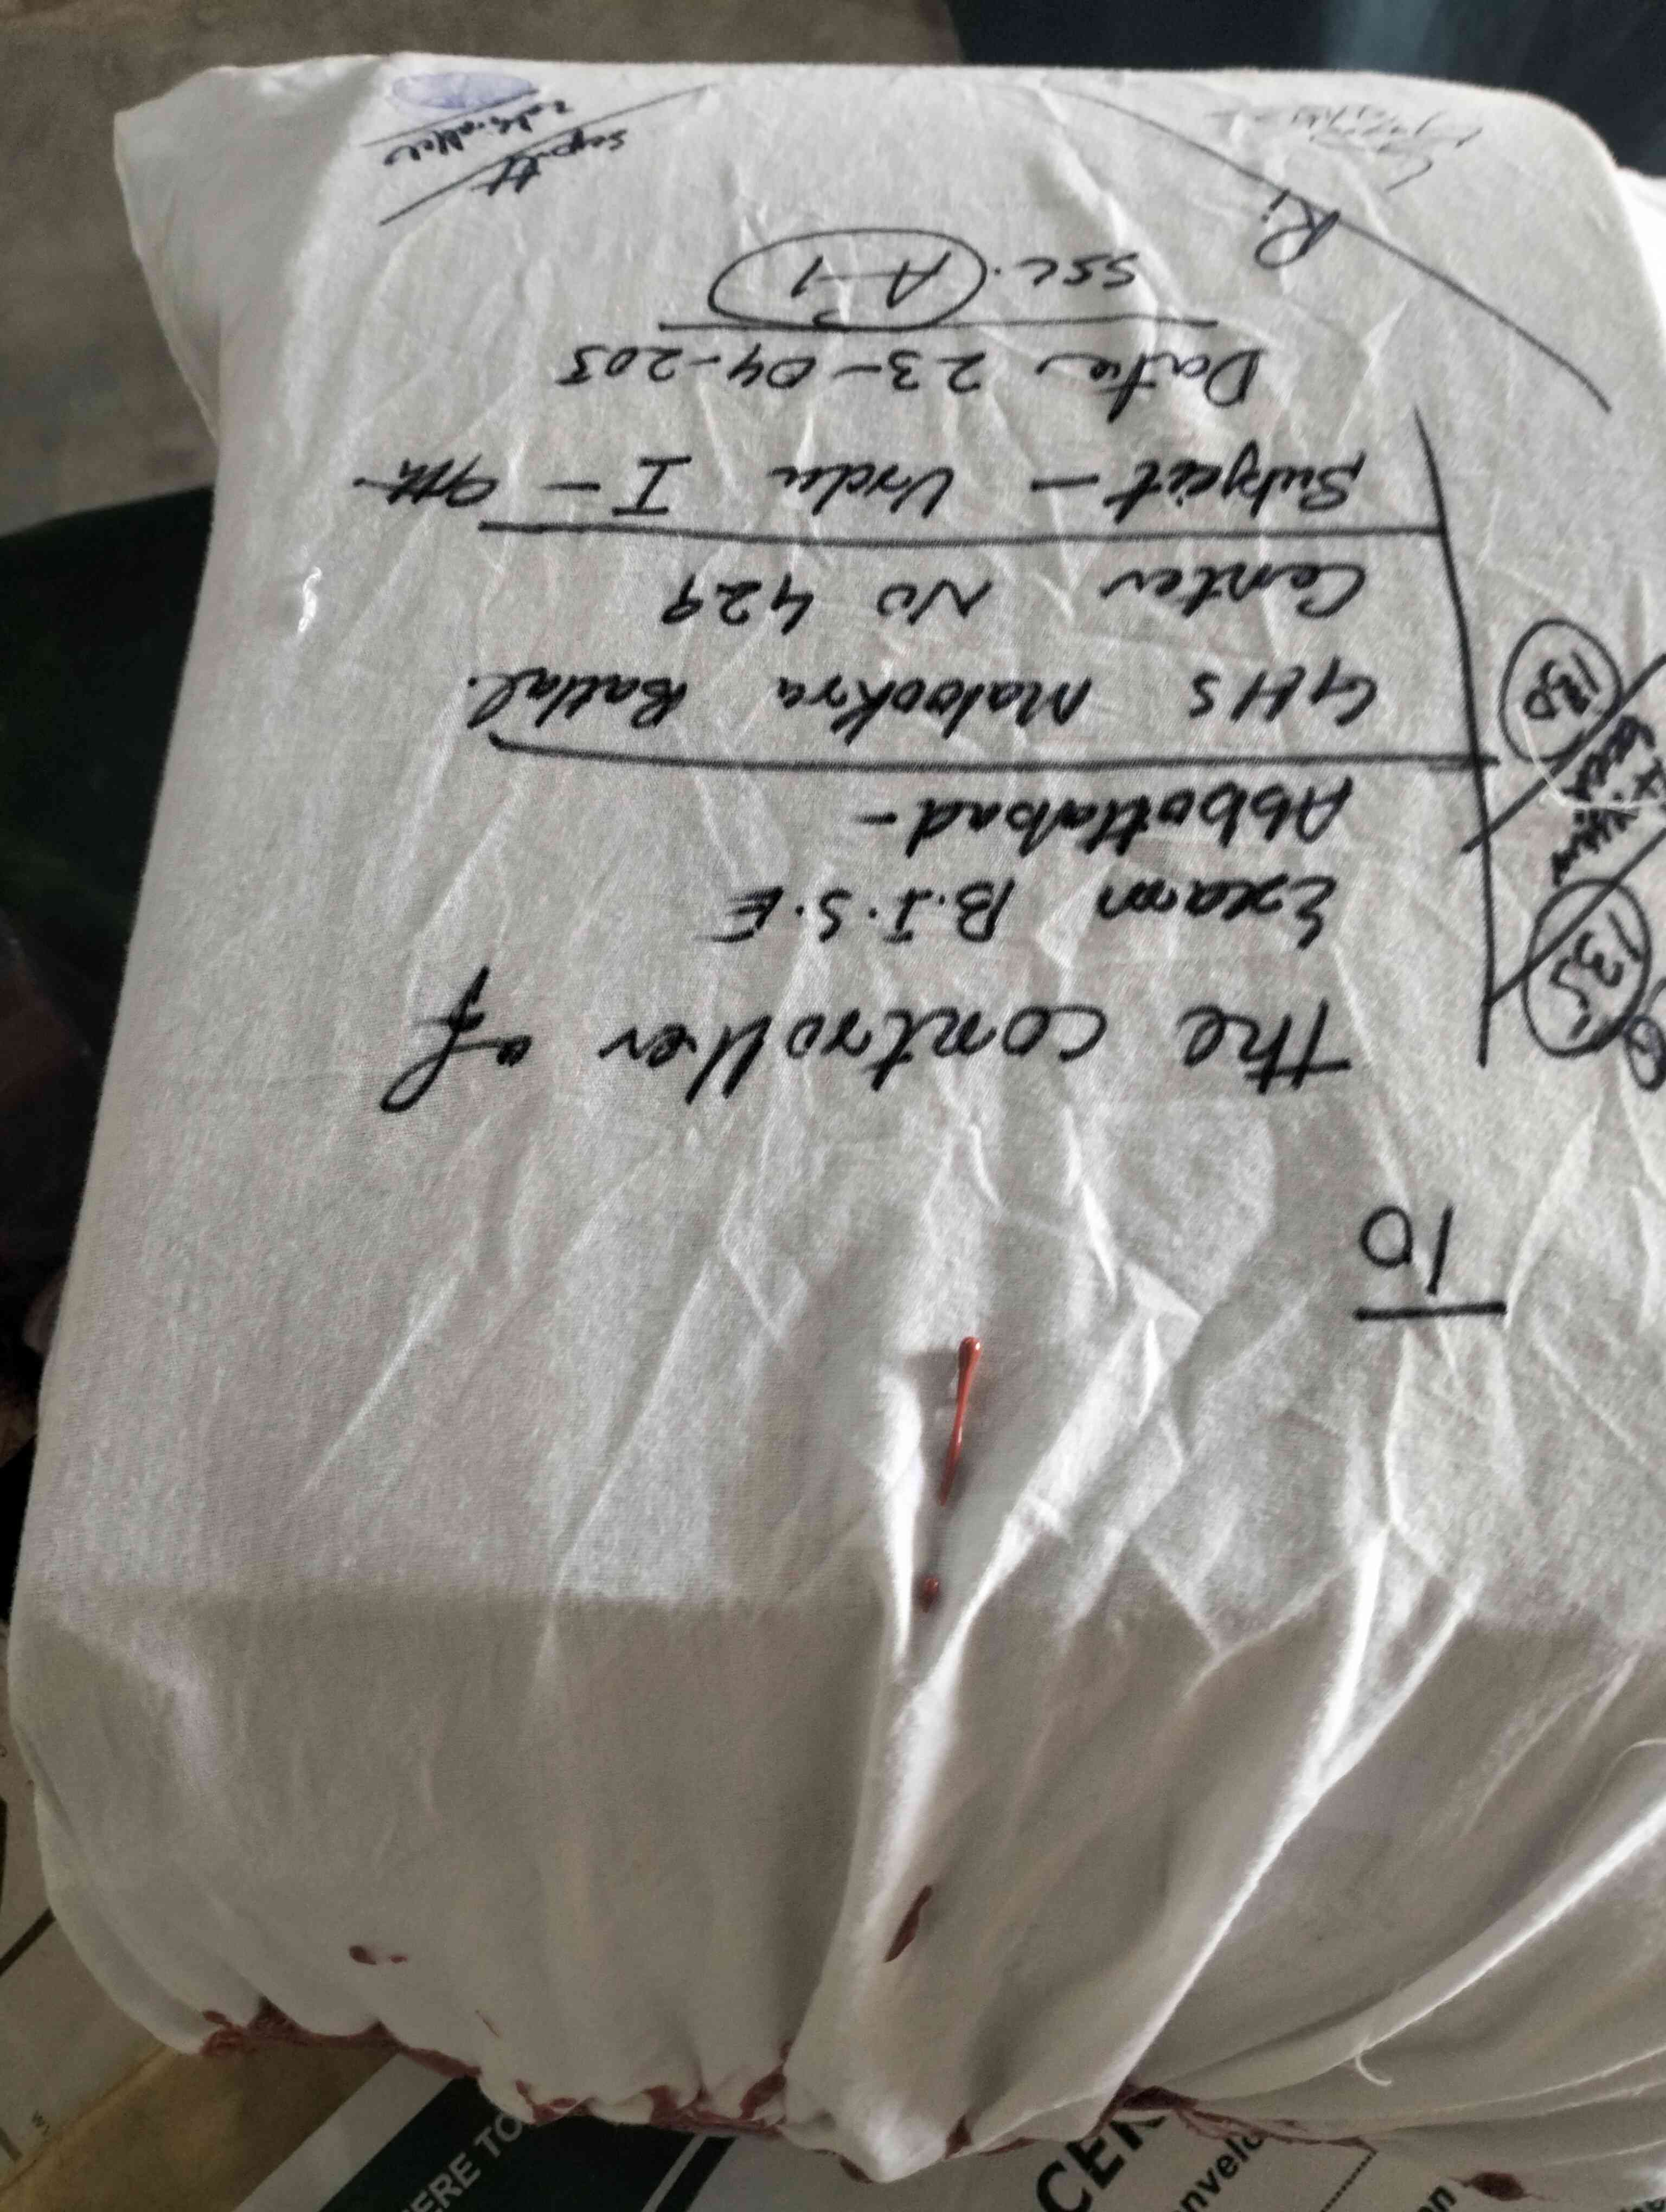 To
The controller of
Exam B.I.S.E
Abbottabad-
GHS Malookra Battal.
Center No 429
Subject - Urdu I - 9th
Date 23-04-205
SSC. A-1
Ri
Supdtt
135
130
ERE TO
CER
nvel